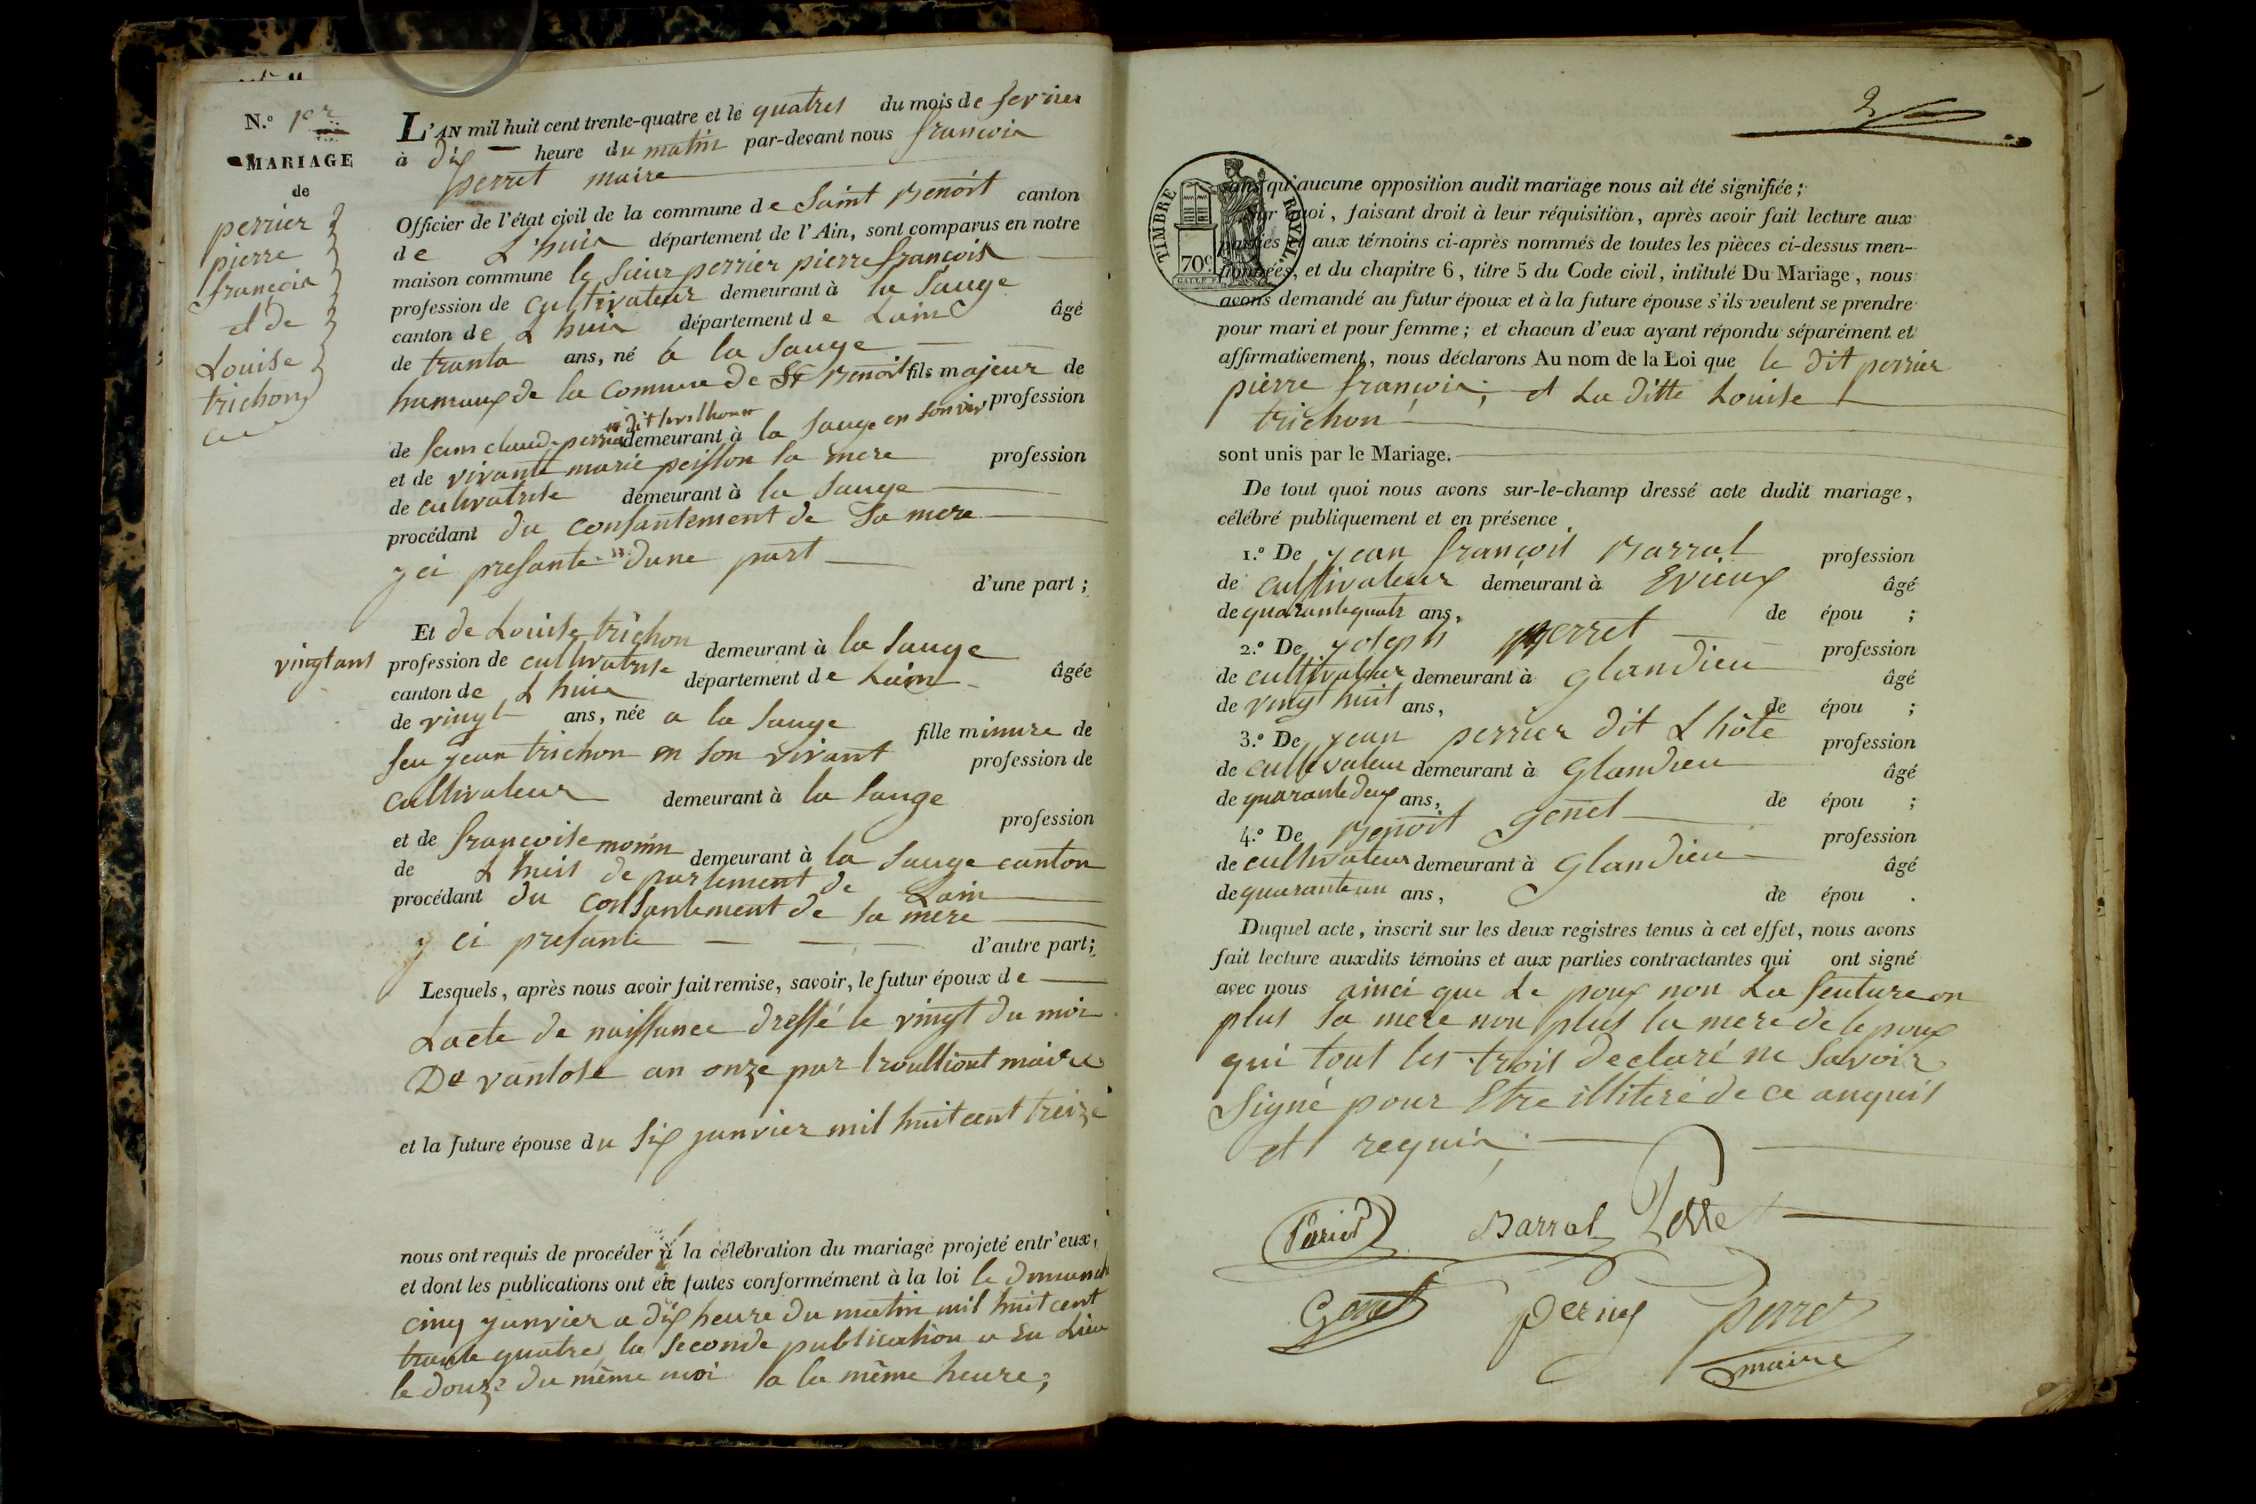 N.º 1er
MARIAGE
de
perrier
pierre
françois
et de
Louise
trichon
L'AN mil huit cent trente-quatre et le quatres du mois de fevrier
à dix heure du matin par-devant nous françois
perret maire
Officier de l'état civil de la commune de Saint Benoit canton
de L'huis département de l'Ain, sont comparus en notre
maison commune le sieur perrier pierre françois
profession de cultivateur demeurant à la Sauge
canton de L huis département de Lain âgé
de tranta ans, né a la Sauge
hamaux de la Commune de St Benoit fils majeur de
de Jean claude perrier dit demeurant à la Sauge en son viv profession
et de vivante marie peisson la mere profession
de cultivatrise demeurant à la Sauge
procédant du consantement de Sa mere
y ci presante dune part
d'une part ;
Et de Louise trichon
vingt ans
profession de cultivatrise demeurant à la Sauge
canton de L huis département de Lain âgée
de vingt ans, née a la Sauge fille minure de
feu jean trichon en son vivant profession de
cultivateur demeurant à la Sauge
et de françoise monin profession
de L huis departement de Lain demeurant à la Sauge canton
procédant du consantement de sa mere
y ci presante d'autre part ;
Lesquels, après nous avoir fait remise, savoir, le futur époux de
Lacte de naissance dressé le vingt du moi
De vantose an onze par trouilliout maire
et la future épouse du six janvier mil huit cent treize
nous ont requis de procéder à la célébration du mariage projeté entr'eux,
et dont les publications ont été faites conformément à la loi le dimanch
cinq janvier a dix heure du matin mil huit cent
trante quatre, la seconde publication a eu Lieu
le douze du même moi a la même heure ;
2
TIMBRE ROYAL
70c
sans qu'aucune opposition audit mariage nous ait été signifiée ;
Sur quoi, faisant droit à leur réquisition, après avoir fait lecture aux
parties et aux témoins ci-après nommés de toutes les pièces ci-dessus men-
tionnées, et du chapitre 6, titre 5 du Code civil, intitulé Du Mariage, nous
avons demandé au futur époux et à la future épouse s'ils veulent se prendre
pour mari et pour femme ; et chacun d'eux ayant répondu séparément et
affirmativement, nous déclarons Au nom de la Loi que le dit perrier
pierre françois ; et La ditte Louise
trichon
sont unis par le Mariage.
De tout quoi nous avons sur-le-champ dressé acte dudit mariage,
célébré publiquement et en présence
1.º De jean françois Barral profession
de cultivateur demeurant à Evieux âgé
de quarantequatr ans, de épou ;
2.º De joseph perret profession
de cultivateur demeurant à glandieu âgé
de vingt huit ans, de épou ;
3.º De jean perrier dit L hôte profession
de cultivateur demeurant à Glandieu âgé
de quarante deux ans, de épou ;
4.º De Benoit Genet profession
de cultivateur demeurant à Glandieu âgé
de quarante un ans, de épou .
Duquel acte, inscrit sur les deux registres tenus à cet effet, nous avons
fait lecture auxdits témoins et aux parties contractantes qui ont signé
avec nous ainci que Le poux non La feuture on
plus sa mere non plus la mere de le poux
qui tout les trois declaré ne Savoir
Signé pour Etre illiteré de ce anquis
et requis ;
Barral
Genet
Perret
maire